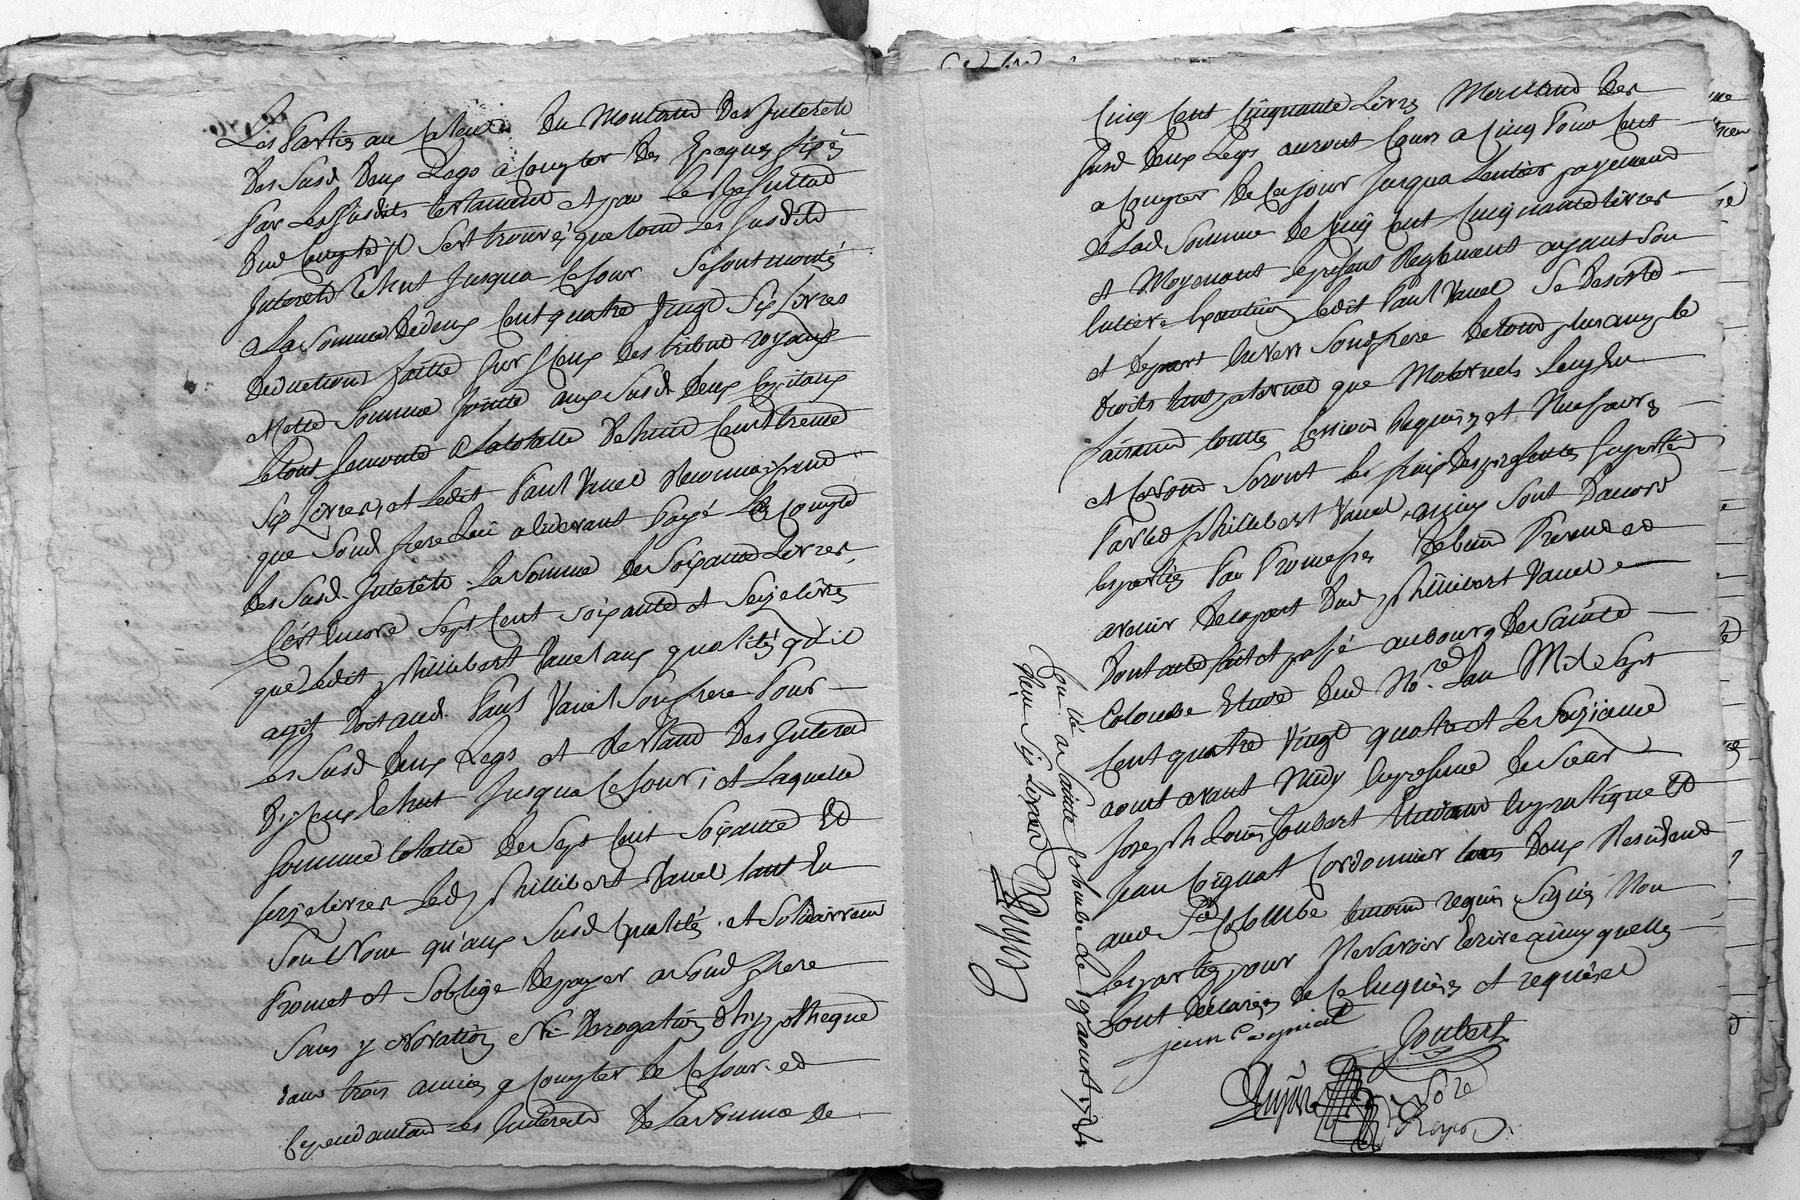 Les Parties au Calcul Du Montand Des Juterets
Des Susd. Deux Legs a Compter Des Epoques fixés
Par Les Susdits testament et par Le Resultad
Dud. Compte Jl Sest trouvés que tout Les Susdits
Juterets Echut Jusqua Ce Jour Se sont montés
a La Somme de deux Cent quatre Vingt Six Livres
Deduction faitte Sur Jceux Des tribut royaux
la ditte Somme Jointe aux Susd. Deux Capitaux
Le tout Se monte a la totalle De huit Cent trente
Six Livres, et Ledit Paul Vanel Reconnoissant
que Sond. frere Lui a Cidevant Payé a Compte
Des Susd. Juterets La Somme De Soixante Livres
C'est Encore Sept Cent Soixante et Seize livres
que Ledit phillibert Vanel aux qualités qu'il
agit Doit aud. Paul Vanel Son frere Pour
Les Susd. Deux Legs et Restand Des Juterets
D'jceux Echut Jusqua Ce Jour; et Laquelle
Somme totalle De Sept Cent Soixante Et
Seize livres Led. phillibert Vanel tant En
Son Nom qu'aux Susd. Qualités et Solidairement
Promet et S'oblige De payer a Sond. frere
Sans y Novation Ni Derogation D'hypotheque
Dans trois années a Compter De Ce Jour et
Cependant Les Juterets De La Somme De
Cinq Cent Cinquante Livres Montand Des
Susd. Deux Legs auront Cours a Cinq Pour Cent
a Compter De Ce jour Jusqua Lentier payement
de Lad. Somme De Cinq Cent Cinquante livres
et Moyenant Le present Reglement ayant Son
Entiere Execution Ledit Paul Vanel Se Desiste
et Depart Envers Sond. frere De tous plus amples
Droits tant paternel que Maternels Luy En
faisant toutte Cession Requise et Necessaire
et Ce Seront les frais Des presentes Supportés
Par Led. phillibert Vanel, ainsy Sont D'accord
les parties Par Promesses
avenir De la part Dud. phillibert Vanel
Dont acte fait et passé au Bourg De Sainte
Colombe Etude Dud. No.re L'an Mil Sept
Cent quatre Vingt quatre et Le Seizieme
aoust avant Midy En presence De Sieur
Joseph Louis Joubert Etudiant En pratique Et
Jean Coignat Cordonnier tous Deux Residend
aud. Ste Colombe temoins requis Signés Non
Les parties pour Ne Savoir Ecrire ainsy quelles
Sont Declarées De Ce Enquises et requises
jean Cogniat
Joubert
Roye
Controllé a Sainte Colombe Le 19 aoust 1784
Reçu Six Livres